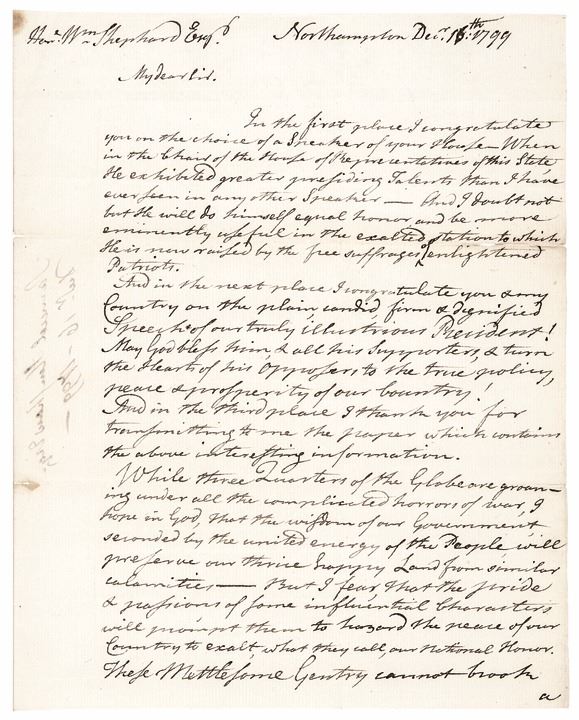 Hon.e Wm Shephard Esqr. Northampton Decr. 16th. 1799
My dear Sir.
In the first place I congratulate
you on the choice of a Speaker of your House — When
in the Chair of the House of Representatives of this State
He exhibited greater presiding Talents than I have
ever seen in any other Speaker — And I doubt not
but He will do himself equal honor and be more
eminently useful in the exalted station to which
He is now raised by the free suffrages of enlightened
Patriots.
And in the next place I congratulate you & my
Country on the plain candid firm & dignified
Speech of our truly illustrious President!
May God bless him & all his Supporters, & turn
the Hearts of his Opposers to the true policy,
peace & prosperity of our Country!
And in the third place I thank you for
transmitting to me the paper which contains
the above interesting information.
While three Quarters of the Globe are groan-
ing under all the complicated horrors of war, I
hope in God, that the wisdom of our Government
seconded by the united energy of the People will
preserve our thrice happy Land from similar
calamities — But I fear that the pride
& passions of some influential Characters
will prompt them to hazard the peace of our
Country to exalt, what they call, our National Honor.
These Mettlesome Gentry cannot brook
a